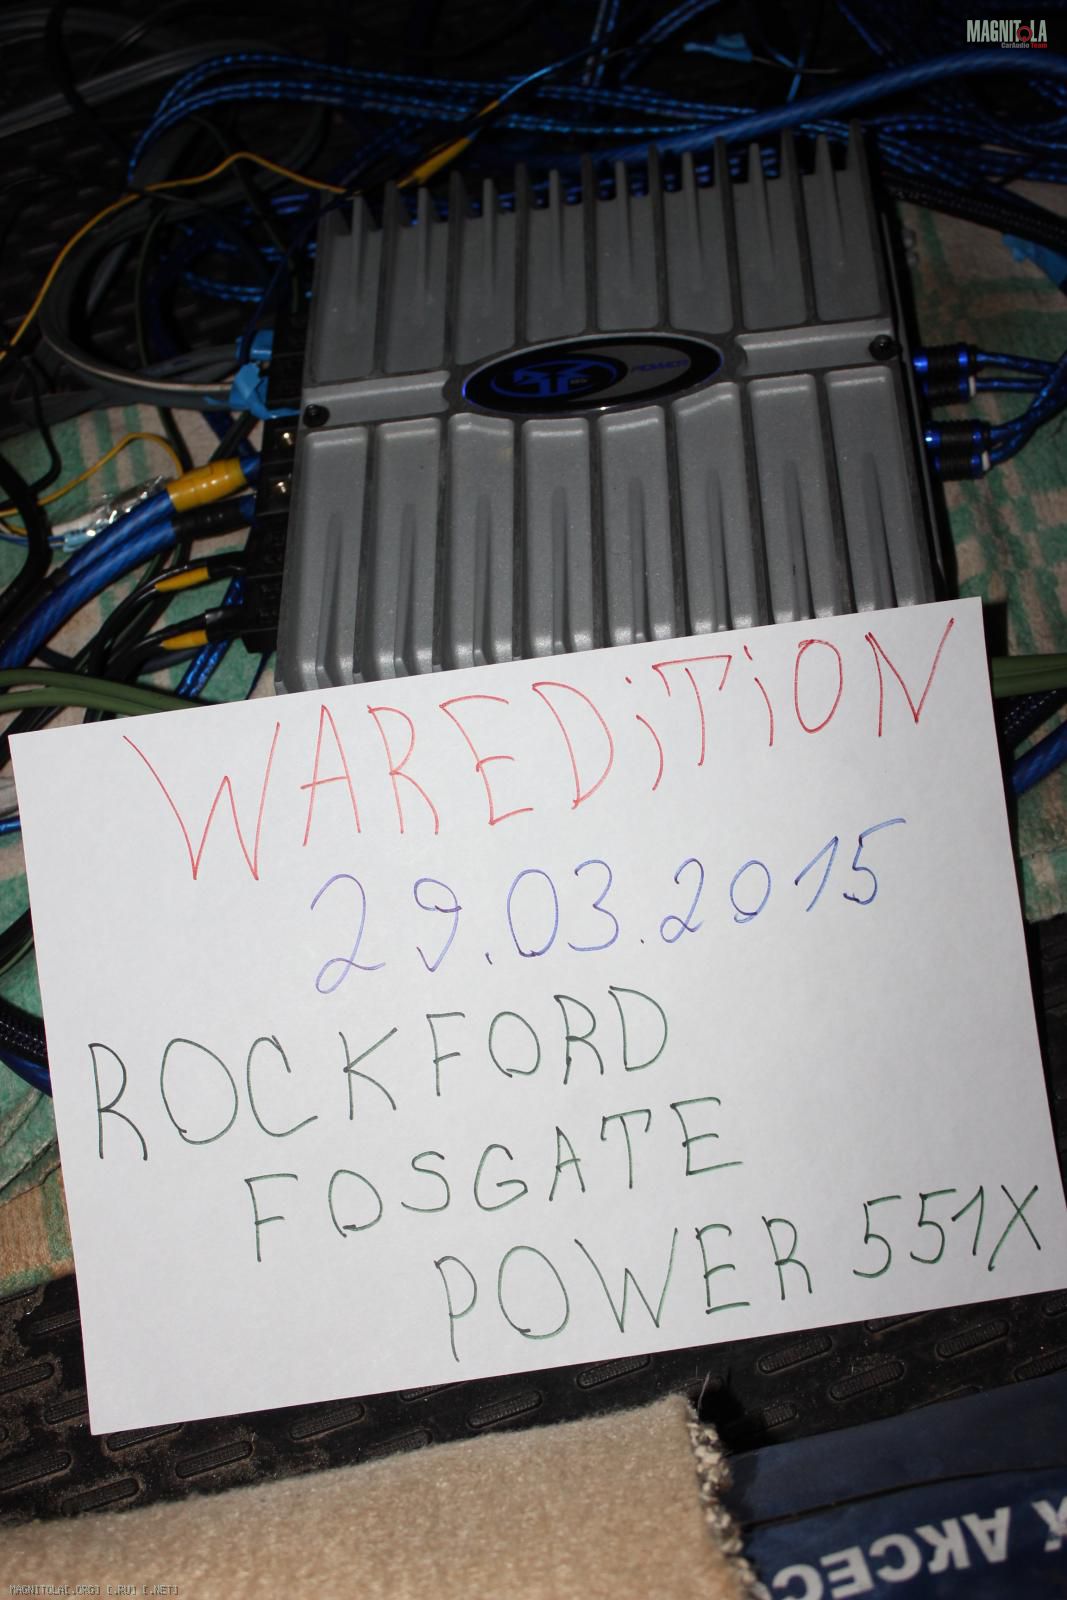 MAGNITOLA
CarAudio Team
POWER
WAREDiTiON
29.03.2015
ROCKFORD
FOSGATE
POWER 551X
Х АКСЕС
MAGNITOLA[.ORG] [.RU] [.NET]